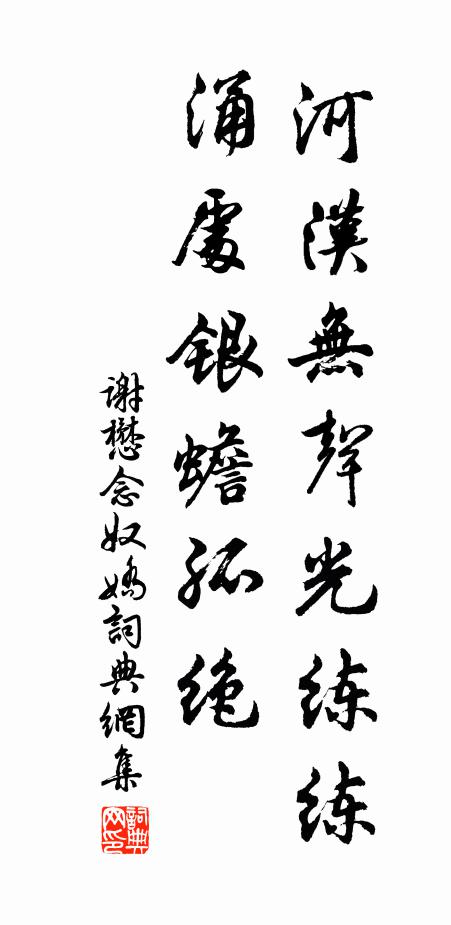 河漢無聲光練練
涌處銀蟾孤絶
謝懋念奴嬌詞典網集
詞典
网印